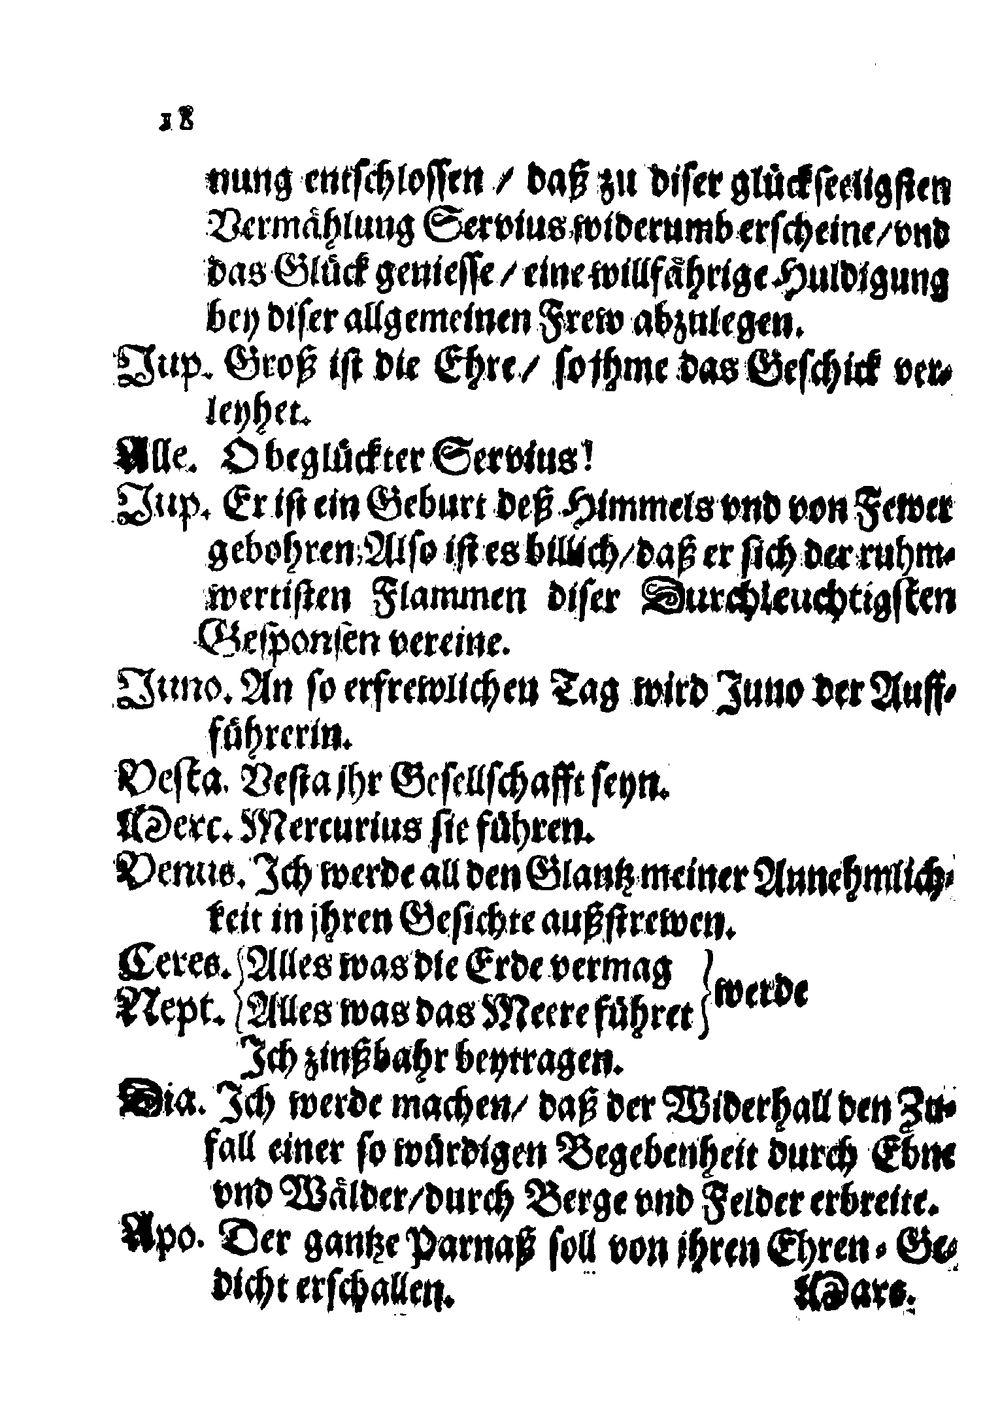 18
nung entschlossen / daß zu diser glückseeligsten
Vermählung Servius widerumb erscheine/vnd
das Glück geniesse / eine willfährige Huldigung
bey diser allgemeinen Frew abzulegen.
Jup. Groß ist die Ehre/ so jhme das Geschick ver-
leyhet.
Alle. O beglückter Servius!
Jup. Er ist ein Geburt deß Himmels vnd von Fewer
gebohren; Also ist es billich/daß er sich der ruhm-
wertisten Flammen diser Durchleuchtigsten
Gesponsen vereine.
Juno. An so erfrewlichen Tag wird Juno der Auff-
führerin.
Vesta. Vesta jhr Gesellschafft seyn.
Merc. Mercurius sie führen.
Venus. Ich werde all den Glantz meiner Annehmlich-
keit in jhren Gesichte außstrewen.
Ceres. {Alles was die Erde vermag
Nept. {Alles was das Meere führet} werde
Ich zinßbahr beytragen.
Dia. Ich werde machen/ daß der Widerhall den Zu-
fall einer so würdigen Begebenheit durch Ebne
vnd Wälder/durch Berge vnd Felder erbreite.
Apo. Der gantze Parnaß soll von jhren Ehren-Ge-
dicht erschallen. Mars.